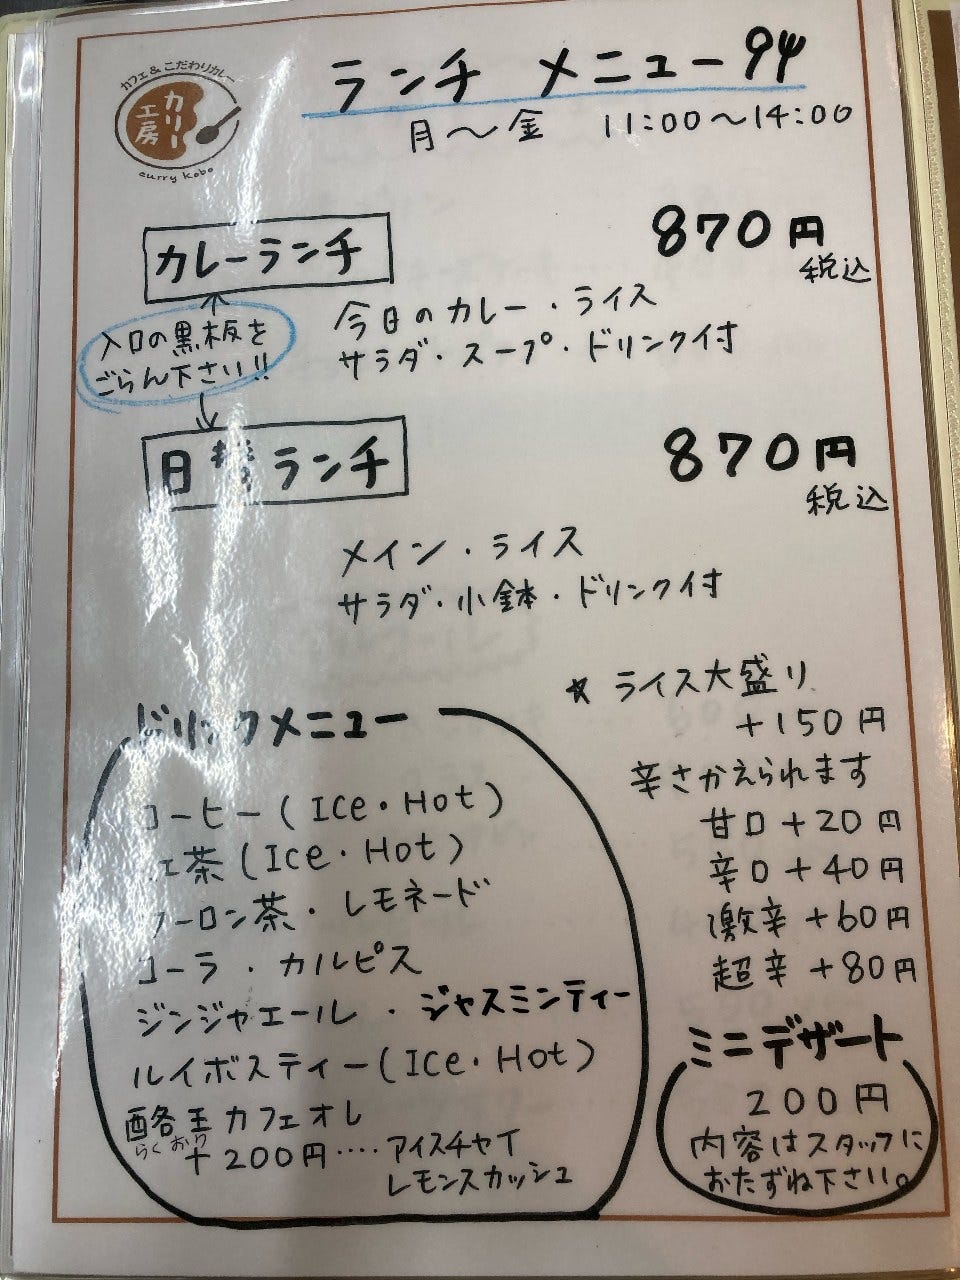 カフェ&こだわりカレー
カリー
工房
curry kobo
ランチ メニュー
月〜金 11:00〜14:00
カレーランチ
870円
税込
今日のカレー・ライス
サラダ・スープ・ドリンク付
入口の黒板を
ごらん下さい!!
日替ランチ
870円
税込
メイン・ライス
サラダ・小鉢・ドリンク付
☆ ライス大盛り
+150円
辛さかえられます
甘口+20円
辛口+40円
激辛+60円
超辛+80円
ドリンクメニュー
コーヒー(Ice・Hot)
紅茶(Ice・Hot)
ウーロン茶・レモネード
コーラ・カルピス
ジンジャエール・ジャスミンティー
ルイボスティー(Ice・Hot)
酪王カフェオレ
らくおう
+200円‥‥アイスチャイ
レモンスカッシュ
ミニデザート
200円
内容はスタッフに
おたずね下さい。